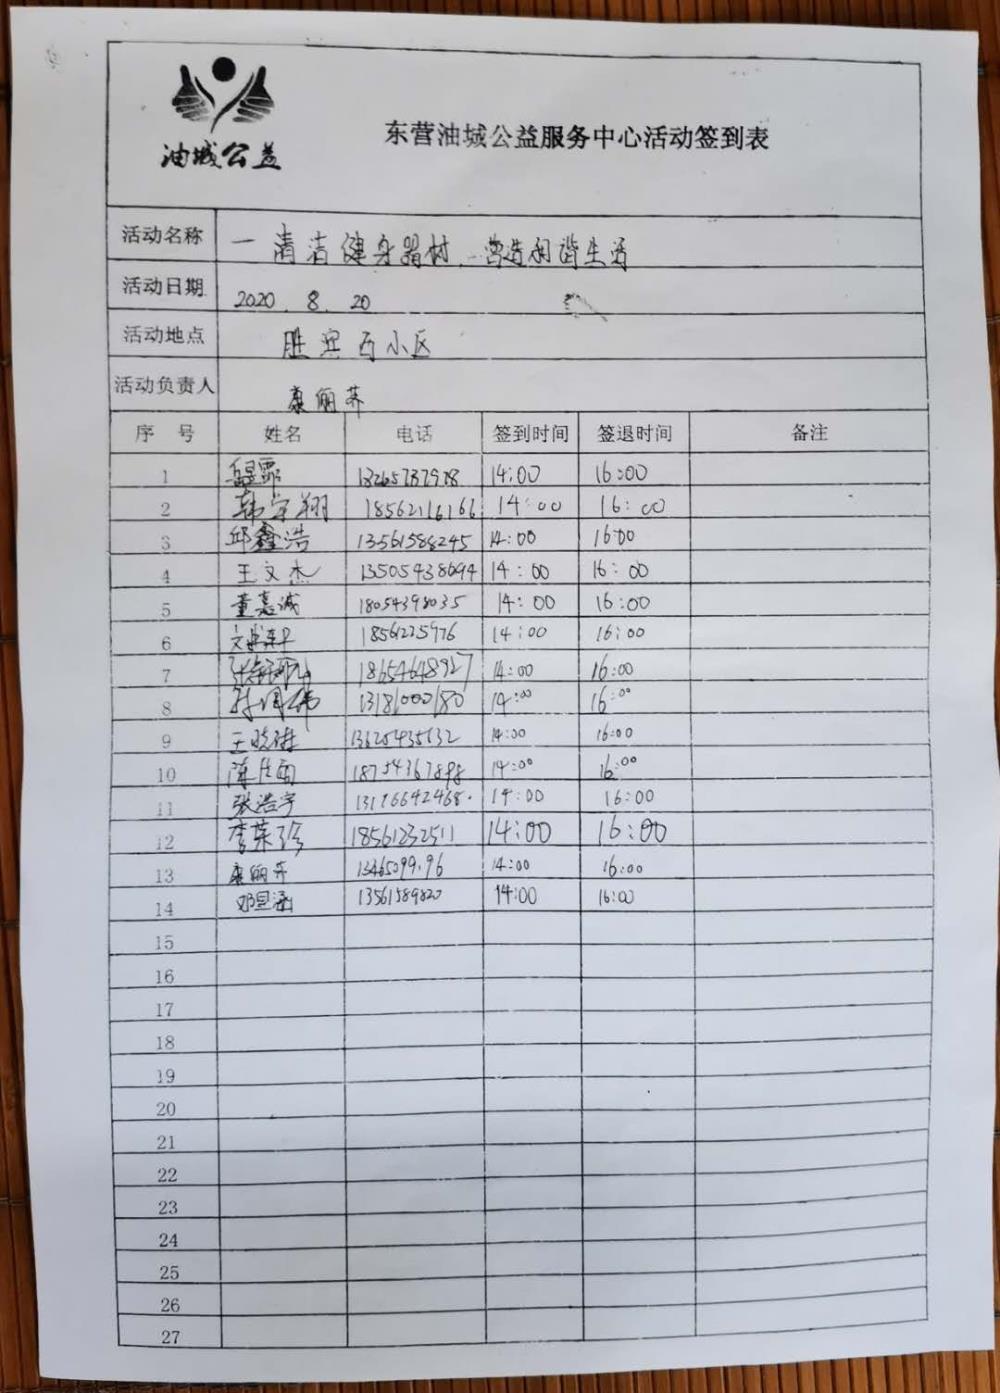 油城公益
东营油城公益服务中心活动签到表
活动名称 一清洁健身器材、营造和谐生活
活动日期 2020.8.20
活动地点 胜宾百小区
活动负责人 康俪荞
序号 姓名 电话 签到时间 签退时间 备注
1 14:00 16:00
2 韩宇翔 18562116166 14:00 16:00
3 邱鑫浩 13561588245 14:00 16:00
4 王文杰 13505438694 14:00 16:00
5 董嘉诚 18054398035 14:00 16:00
6 18561225976 14:00 16:00
7 18654648927 14:00 16:00
8 13181000180 14:00 16:00
9 王晓琳 14:00 16:00
10 14:00 16:00
11 张浩宇 13176642468. 14:00 16:00
12 李荣珍 18561232511 14:00 16:00
13 康俪荞 14:00 16:00
14 邓昱涵 13561589820 14:00 16:00
15
16
17
18
19
20
21
22
23
24
25
26
27